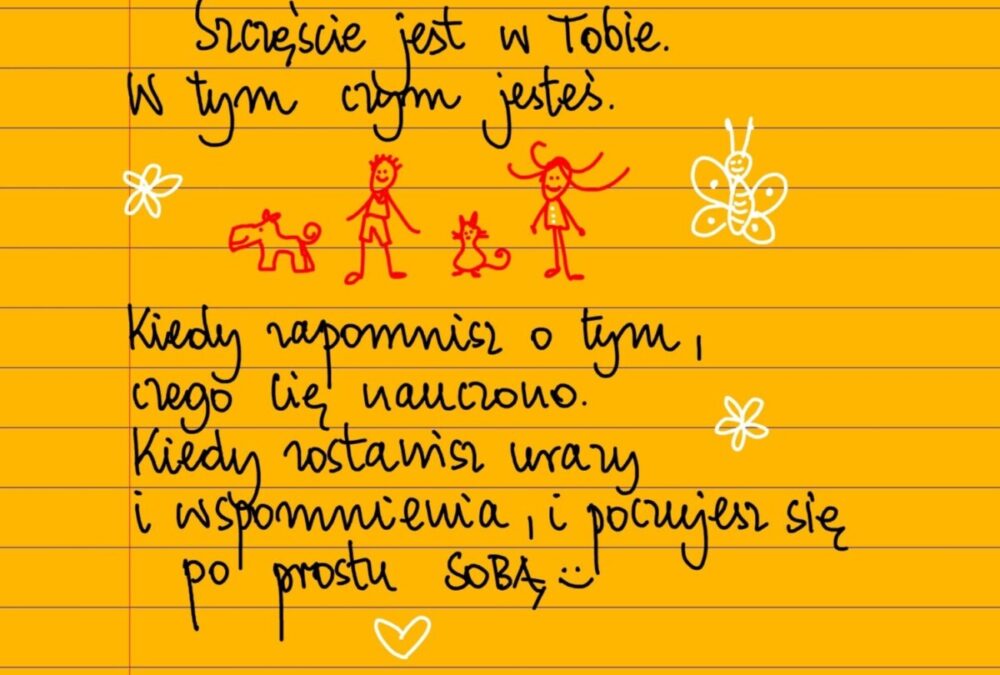 Szczęście jest w Tobie.
W tym czym jesteś.
Kiedy zapomnisz o tym,
czego Cię nauczono.
Kiedy zostawisz urazy
i wspomnienia, i poczujesz się
po prostu SOBĄ :)